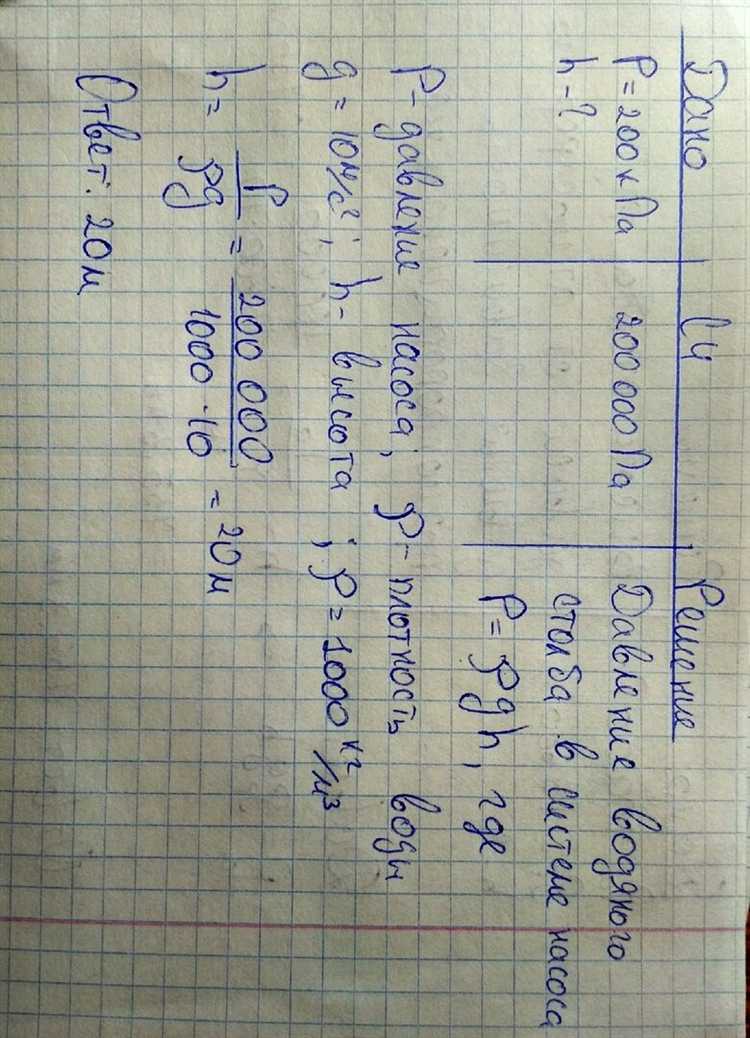 Дано
Си
Решение
P = 200 к Па
200 000 Па
Давление водяного
h - ?
столба в системе насоса
P = ρgh, где
P - давление насоса; ρ - плотность воды
g = 10 м/с²; h - высота; ρ = 1000 кг/м³
h = P/ρg = 200 000/1000 · 10 = 20 м
Ответ: 20 м